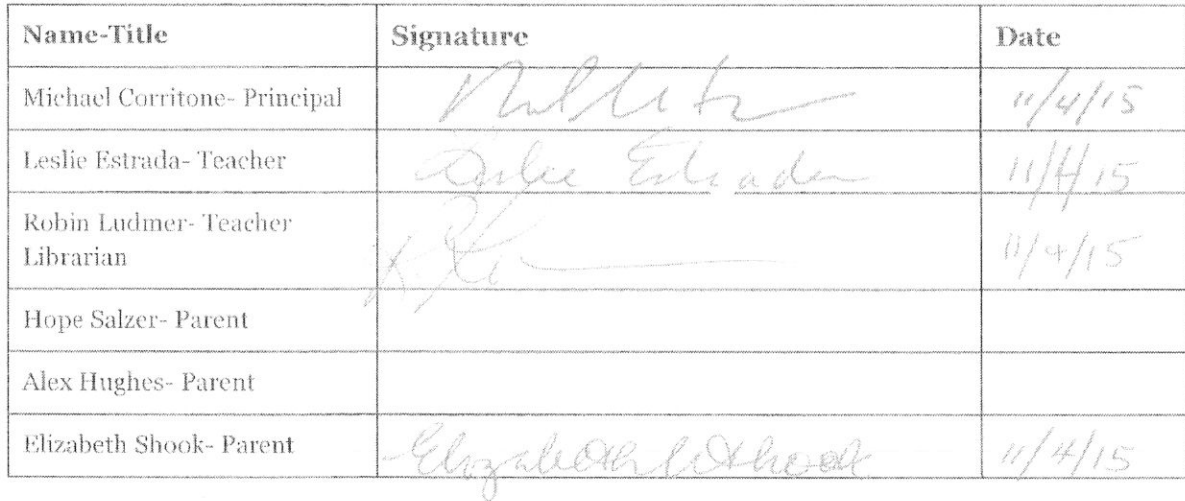 Name-Title Signature Date
Michael Corritone- Principal 11/4/15
Leslie Estrada- Teacher Leslie Estrada 11/4/15
Robin Ludmer- Teacher
Librarian 11/4/15
Hope Salzer- Parent
Alex Hughes- Parent
Elizabeth Shook- Parent Elizabeth Shook 11/4/15